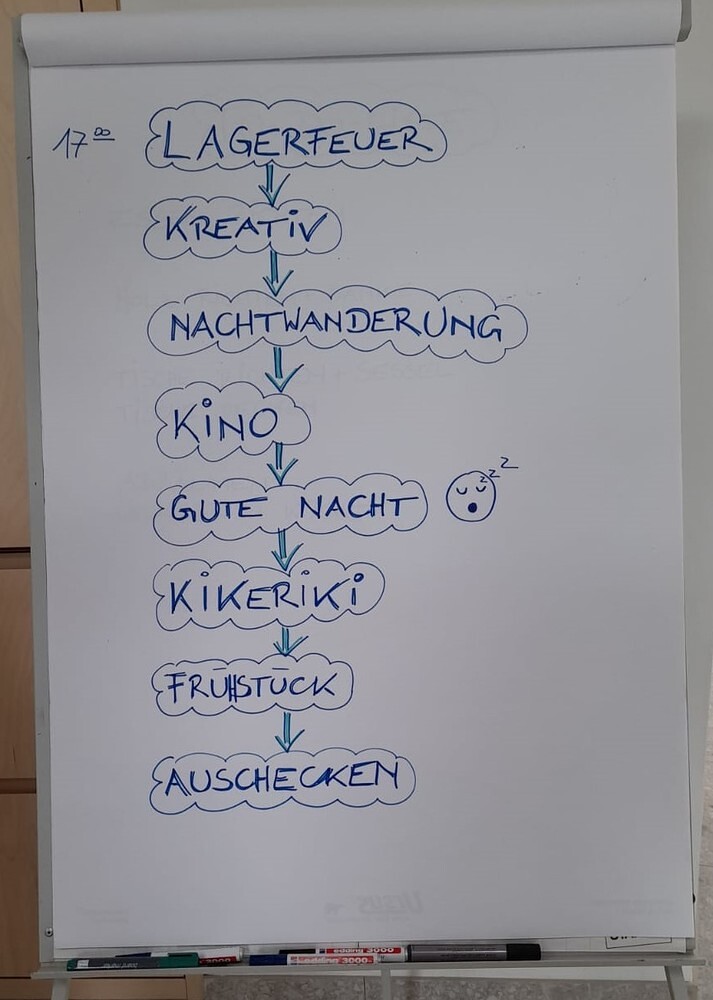 17⁰⁰ LAGERFEUER
KREATIV
NACHTWANDERUNG
KINO
GUTE NACHT zzz
KIKERIKI
FRÜHSTÜCK
AUSCHECKEN
edding 3000
edding 3000